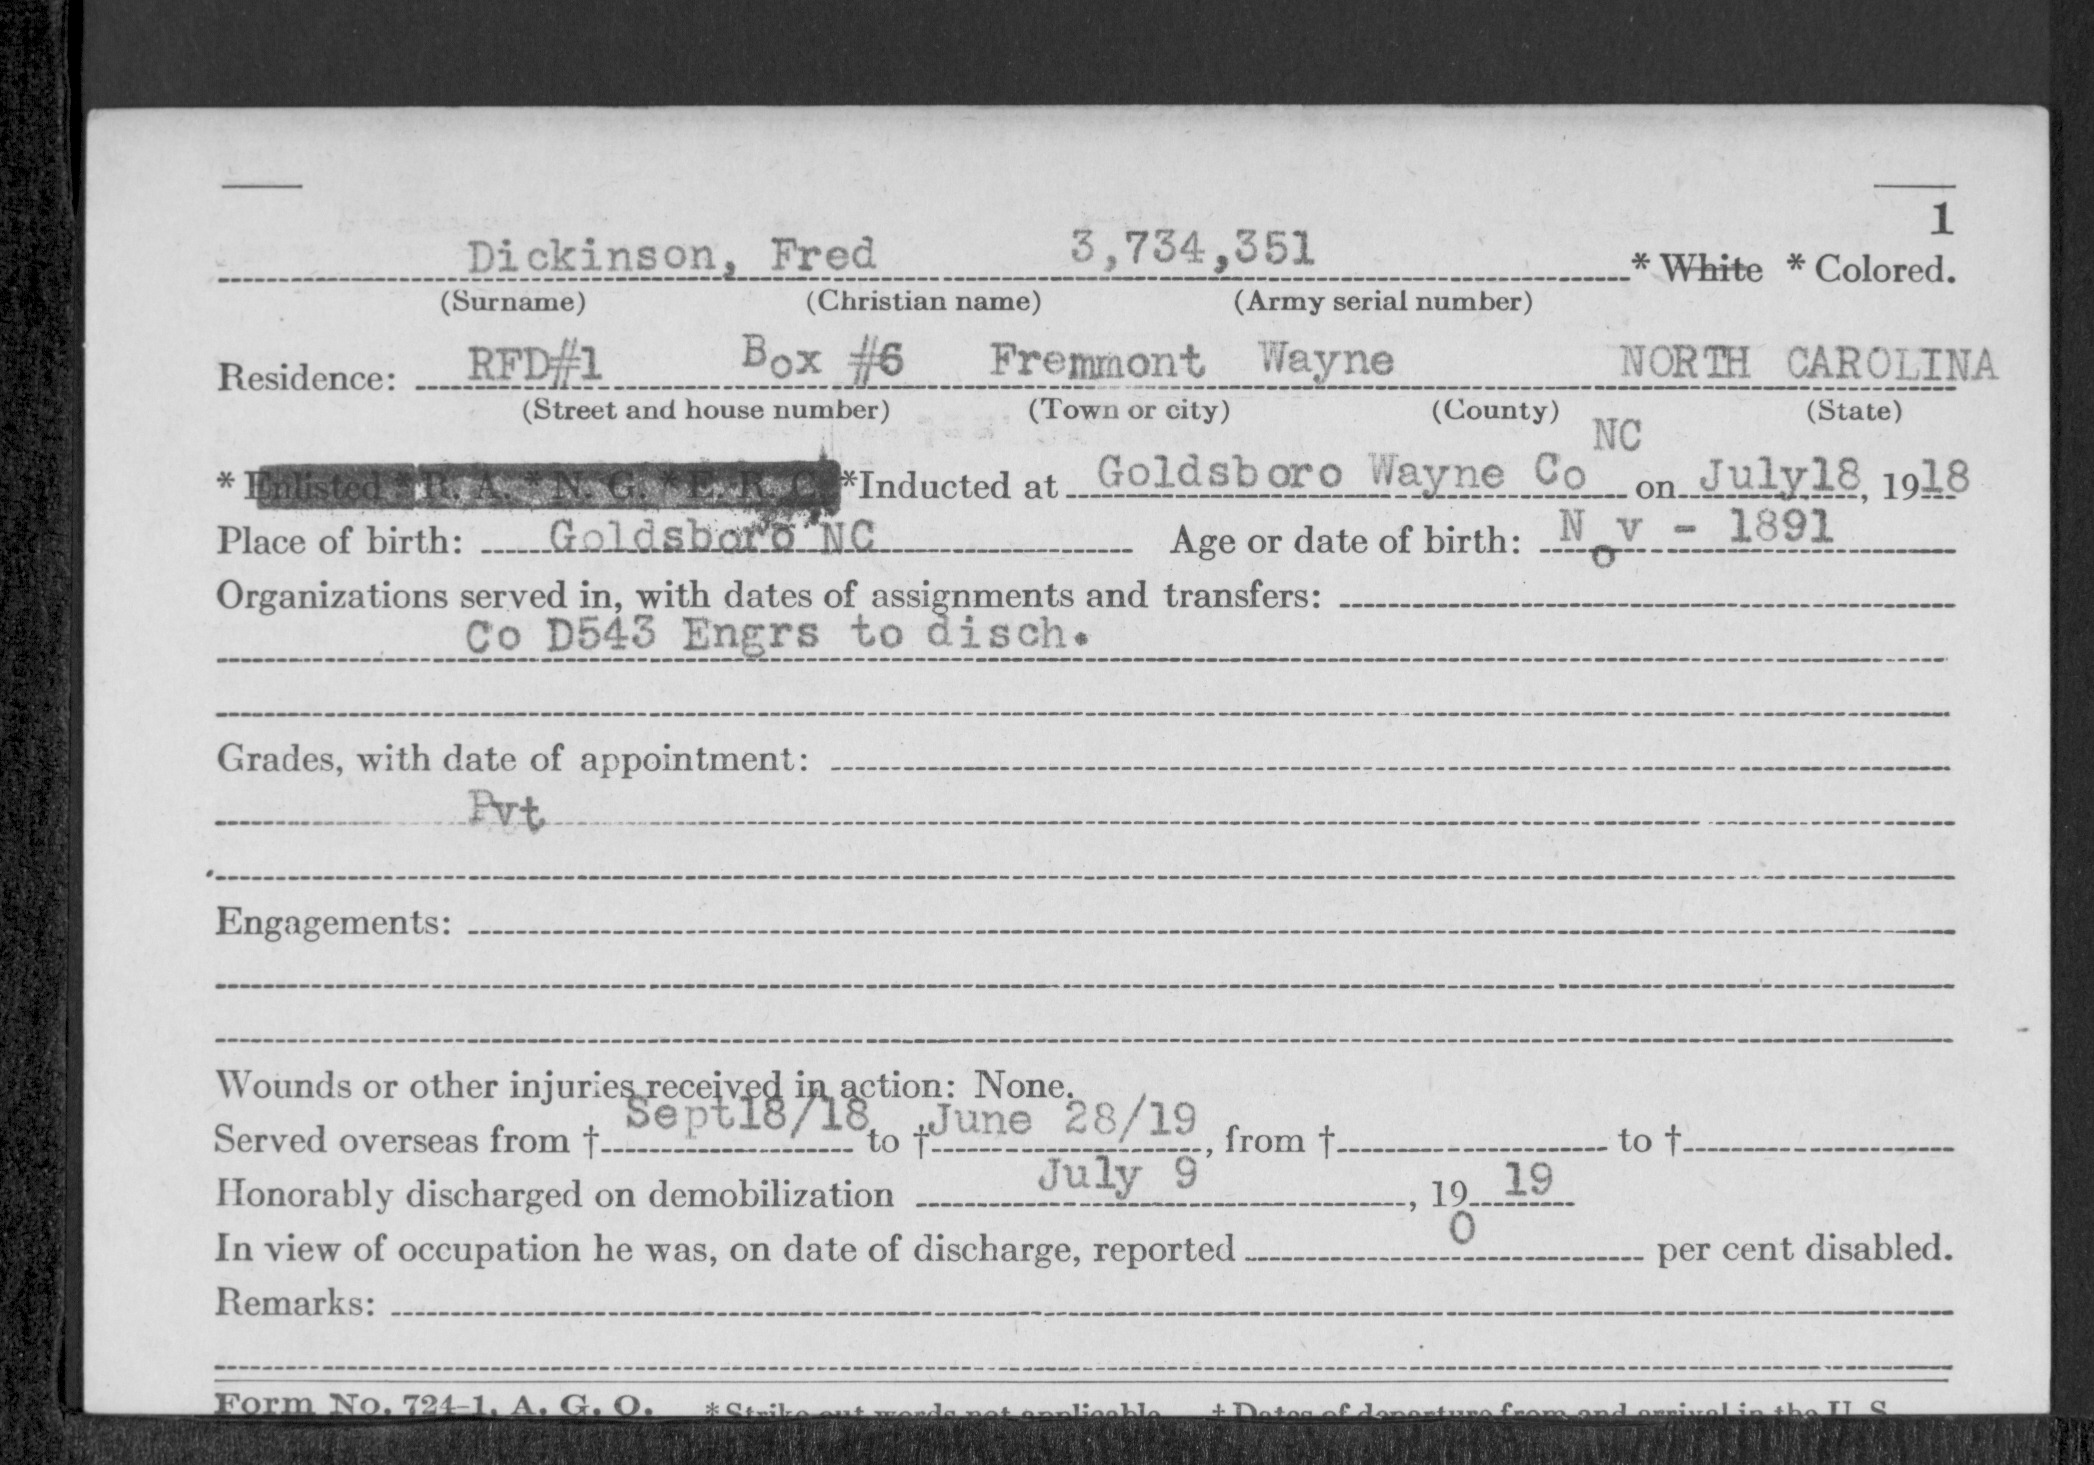 1
Dickinson, Fred 3,734,351 * White * Colored.
(Surname) (Christian name) (Army serial number)
Residence: RFD#1 Box #6 Fremmont Wayne NORTH CAROLINA
(Street and house number) (Town or city) (County) (State)
NC
* Enlisted * R. A. * N. G. * E. R. C. *Inducted at Goldsboro Wayne Co on July18, 1918
Place of birth: Goldsboro NC Age or date of birth: Nov - 1891
Organizations served in, with dates of assignments and transfers:
Co D543 Engrs to disch.
Grades, with date of appointment:
Pvt
Engagements:
Wounds or other injuries received in action: None.
Served overseas from † Sept18/18 to † June 28/19, from † to †
Honorably discharged on demobilization July 9, 19 19
In view of occupation he was, on date of discharge, reported 0 per cent disabled.
Remarks:
Form No. 724-1, A. G. O. * Strike out words not applicable. † Dates of departure from and arrival in the U. S.